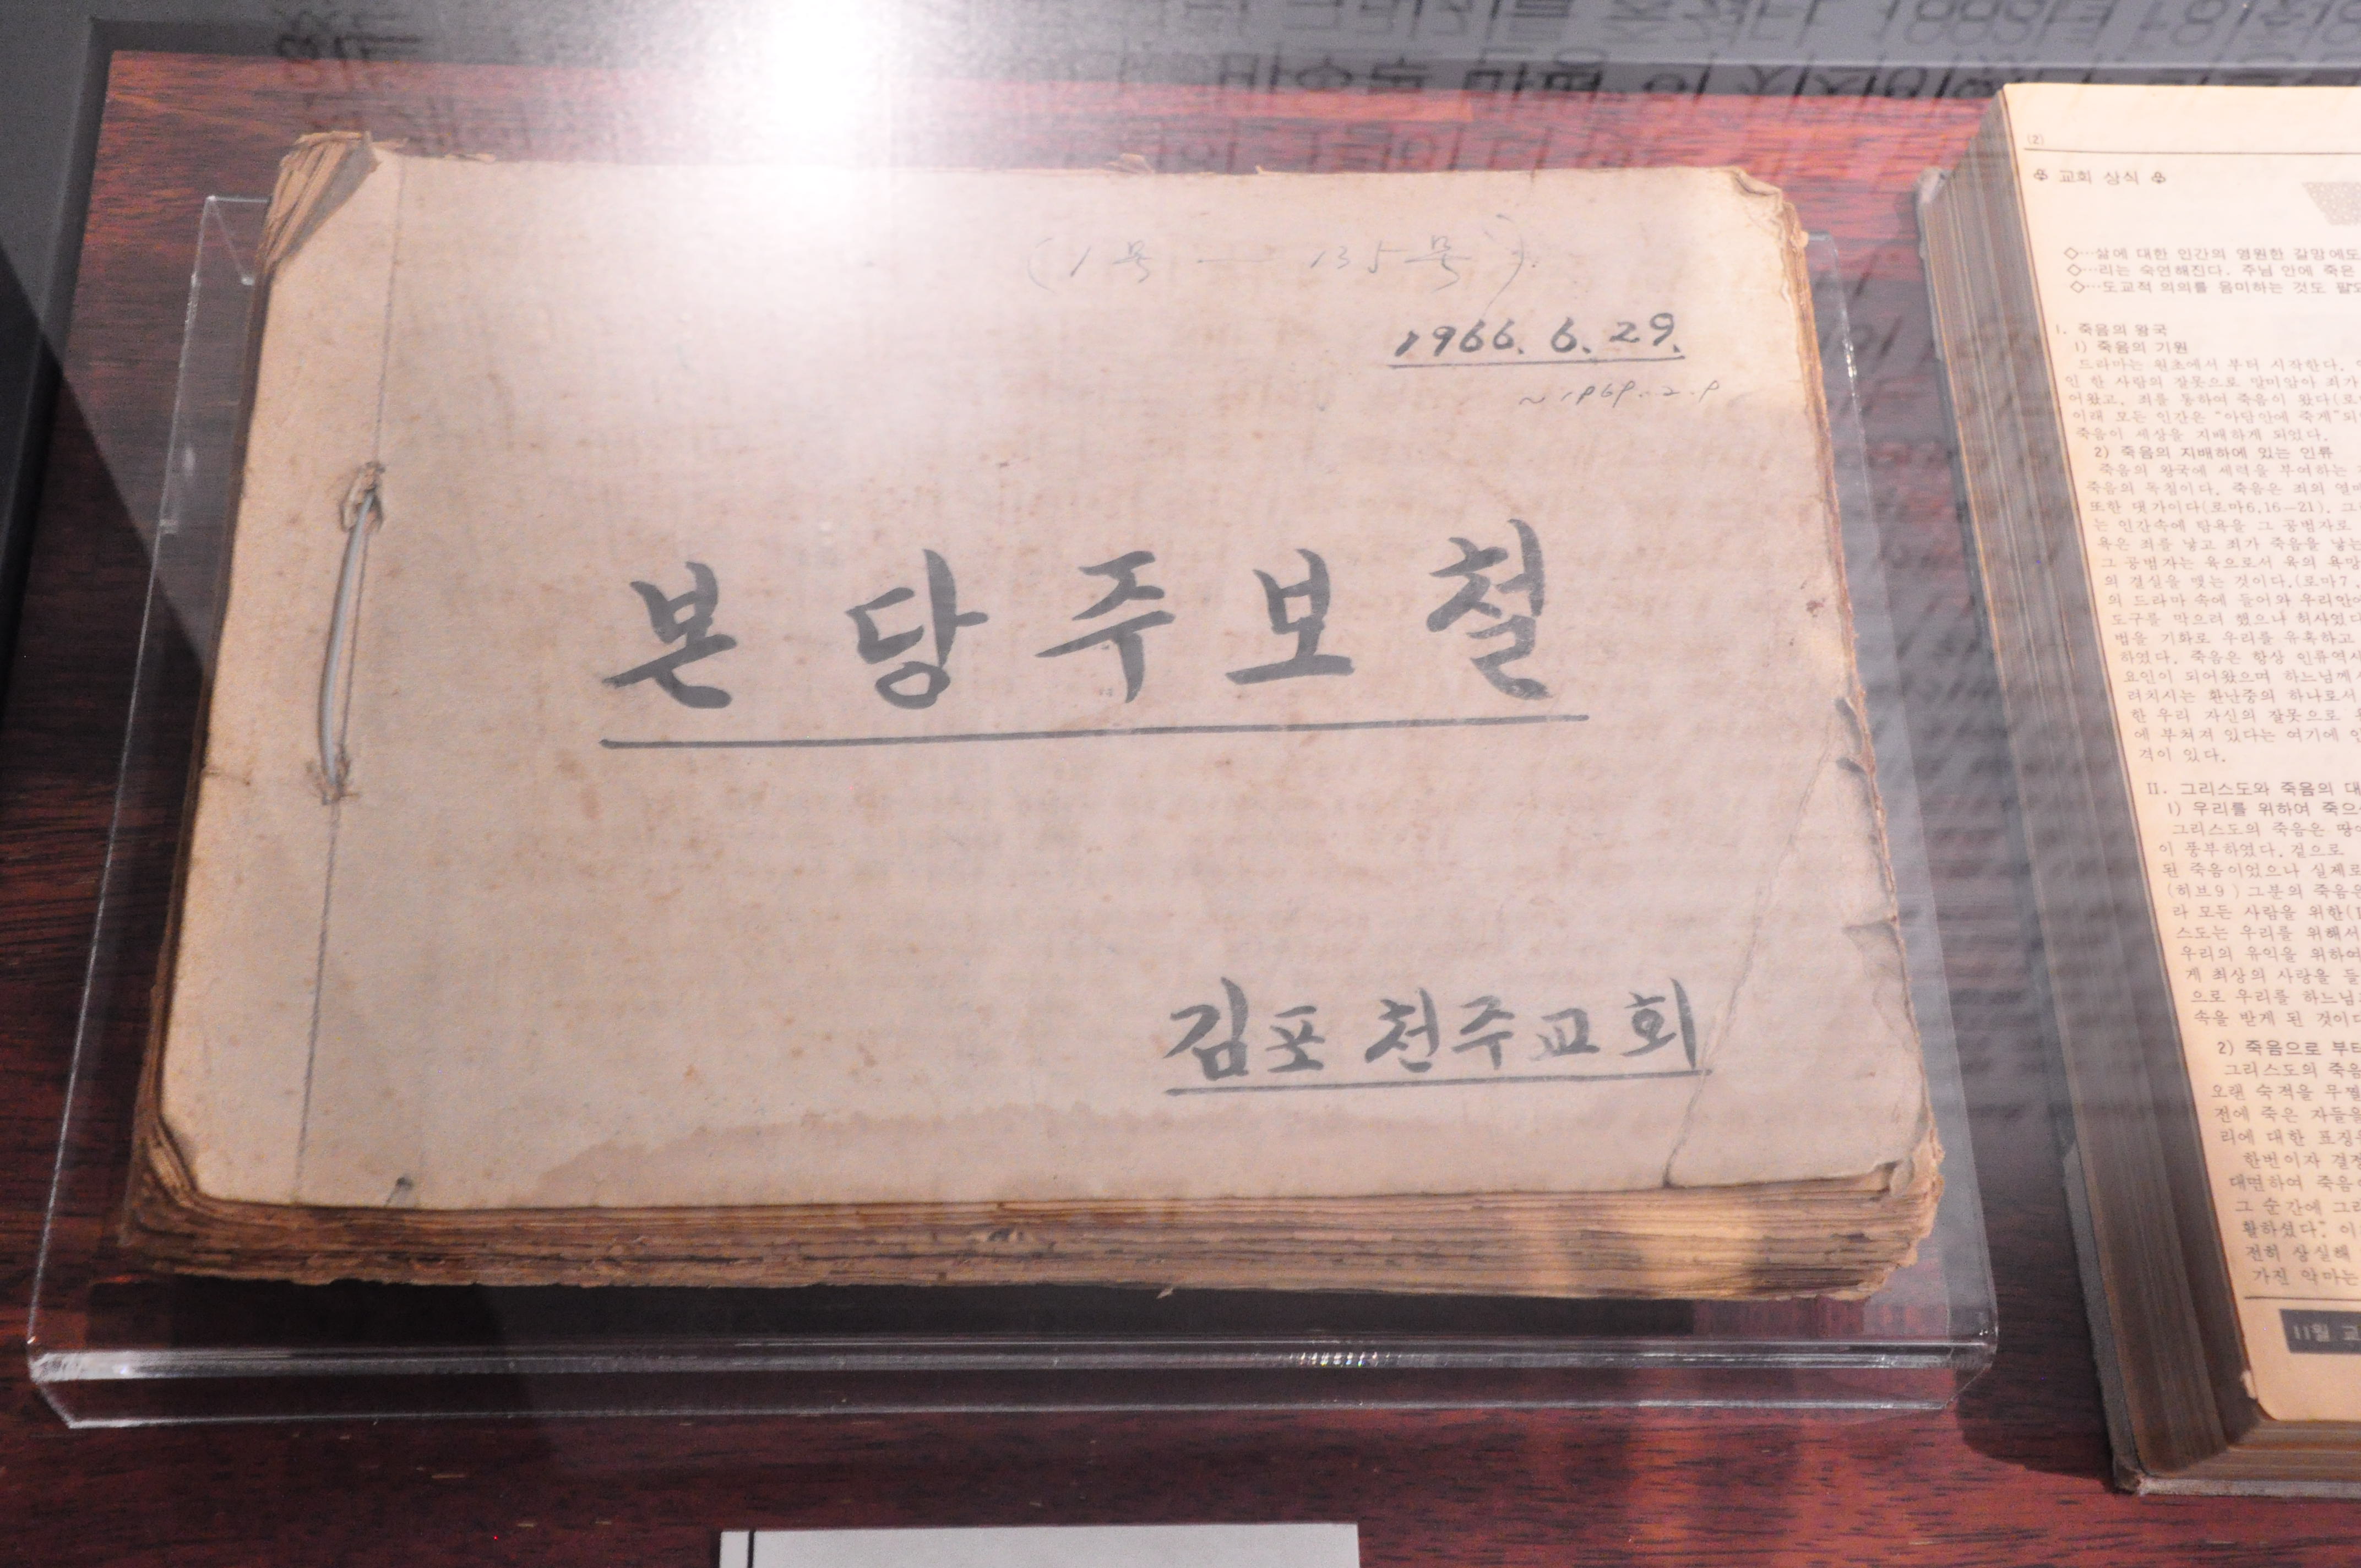 (1号 — 135号)
1966. 6. 29.
~1969. 2. 9
본당주보철
김포 천주교회
(2)
♣ 교회 상식 ♣
◇…삶에 대한 인간의 영원한 갈망에도
◇…리는 숙연해진다. 주님 안에 죽은
◇…도교적 의의를 음미하는 것도 팔
I. 죽음의 왕국
1) 죽음의 기원
드라마는 원초에서 부터 시작한다.
인 한 사람의 잘못으로 말미암아 죄가
어왔고, 죄를 통하여 죽음이 왔다(로
이래 모든 인간은 "아담안에 죽게"되
죽음이 세상을 지배하게 되었다.
2) 죽음의 지배하에 있는 인류
죽음의 왕국에 세력을 부여하는
죽음의 독침이다. 죽음은 죄의 열매
또한 대가이다(로마6,16—21). 그
는 인간속에 탐욕을 그 공범자로
욕은 죄를 낳고 죄가 죽음을 낳는
그 공범자는 육으로서 육의 욕망
의 결실을 맺는 것이다.(로마7,
의 드라마 속에 들어와 우리안에
도구를 막으려 했으나 허사였다
법을 기화로 우리를 유혹하고
하였다. 죽음은 항상 인류역사
요인이 되어왔으며 하느님께서
려치시는 환난중의 하나로서
한 우리 자신의 잘못으로
에 부쳐져 있다는 여기에 인
격이 있다.
II. 그리스도와 죽음의 대
1) 우리를 위하여 죽으
그리스도의 죽음은 땅에
이 풍부하였다. 겉으로
된 죽음이었으나 실제로
(히브9) 그분의 죽음은
라 모든 사람을 위한(
스도는 우리를 위해서
우리의 유익을 위하여
게 최상의 사랑을 들
으로 우리를 하느님
속을 받게 된 것이다
2) 죽음으로 부터
그리스도의 죽음
오랜 숙적을 무찔
전에 죽은 자들을
리에 대한 표징
한번이자 결정
대면하여 죽음
그 순간에 그리
활하셨다". 이
전히 상실해
가진 악마는
11월 교